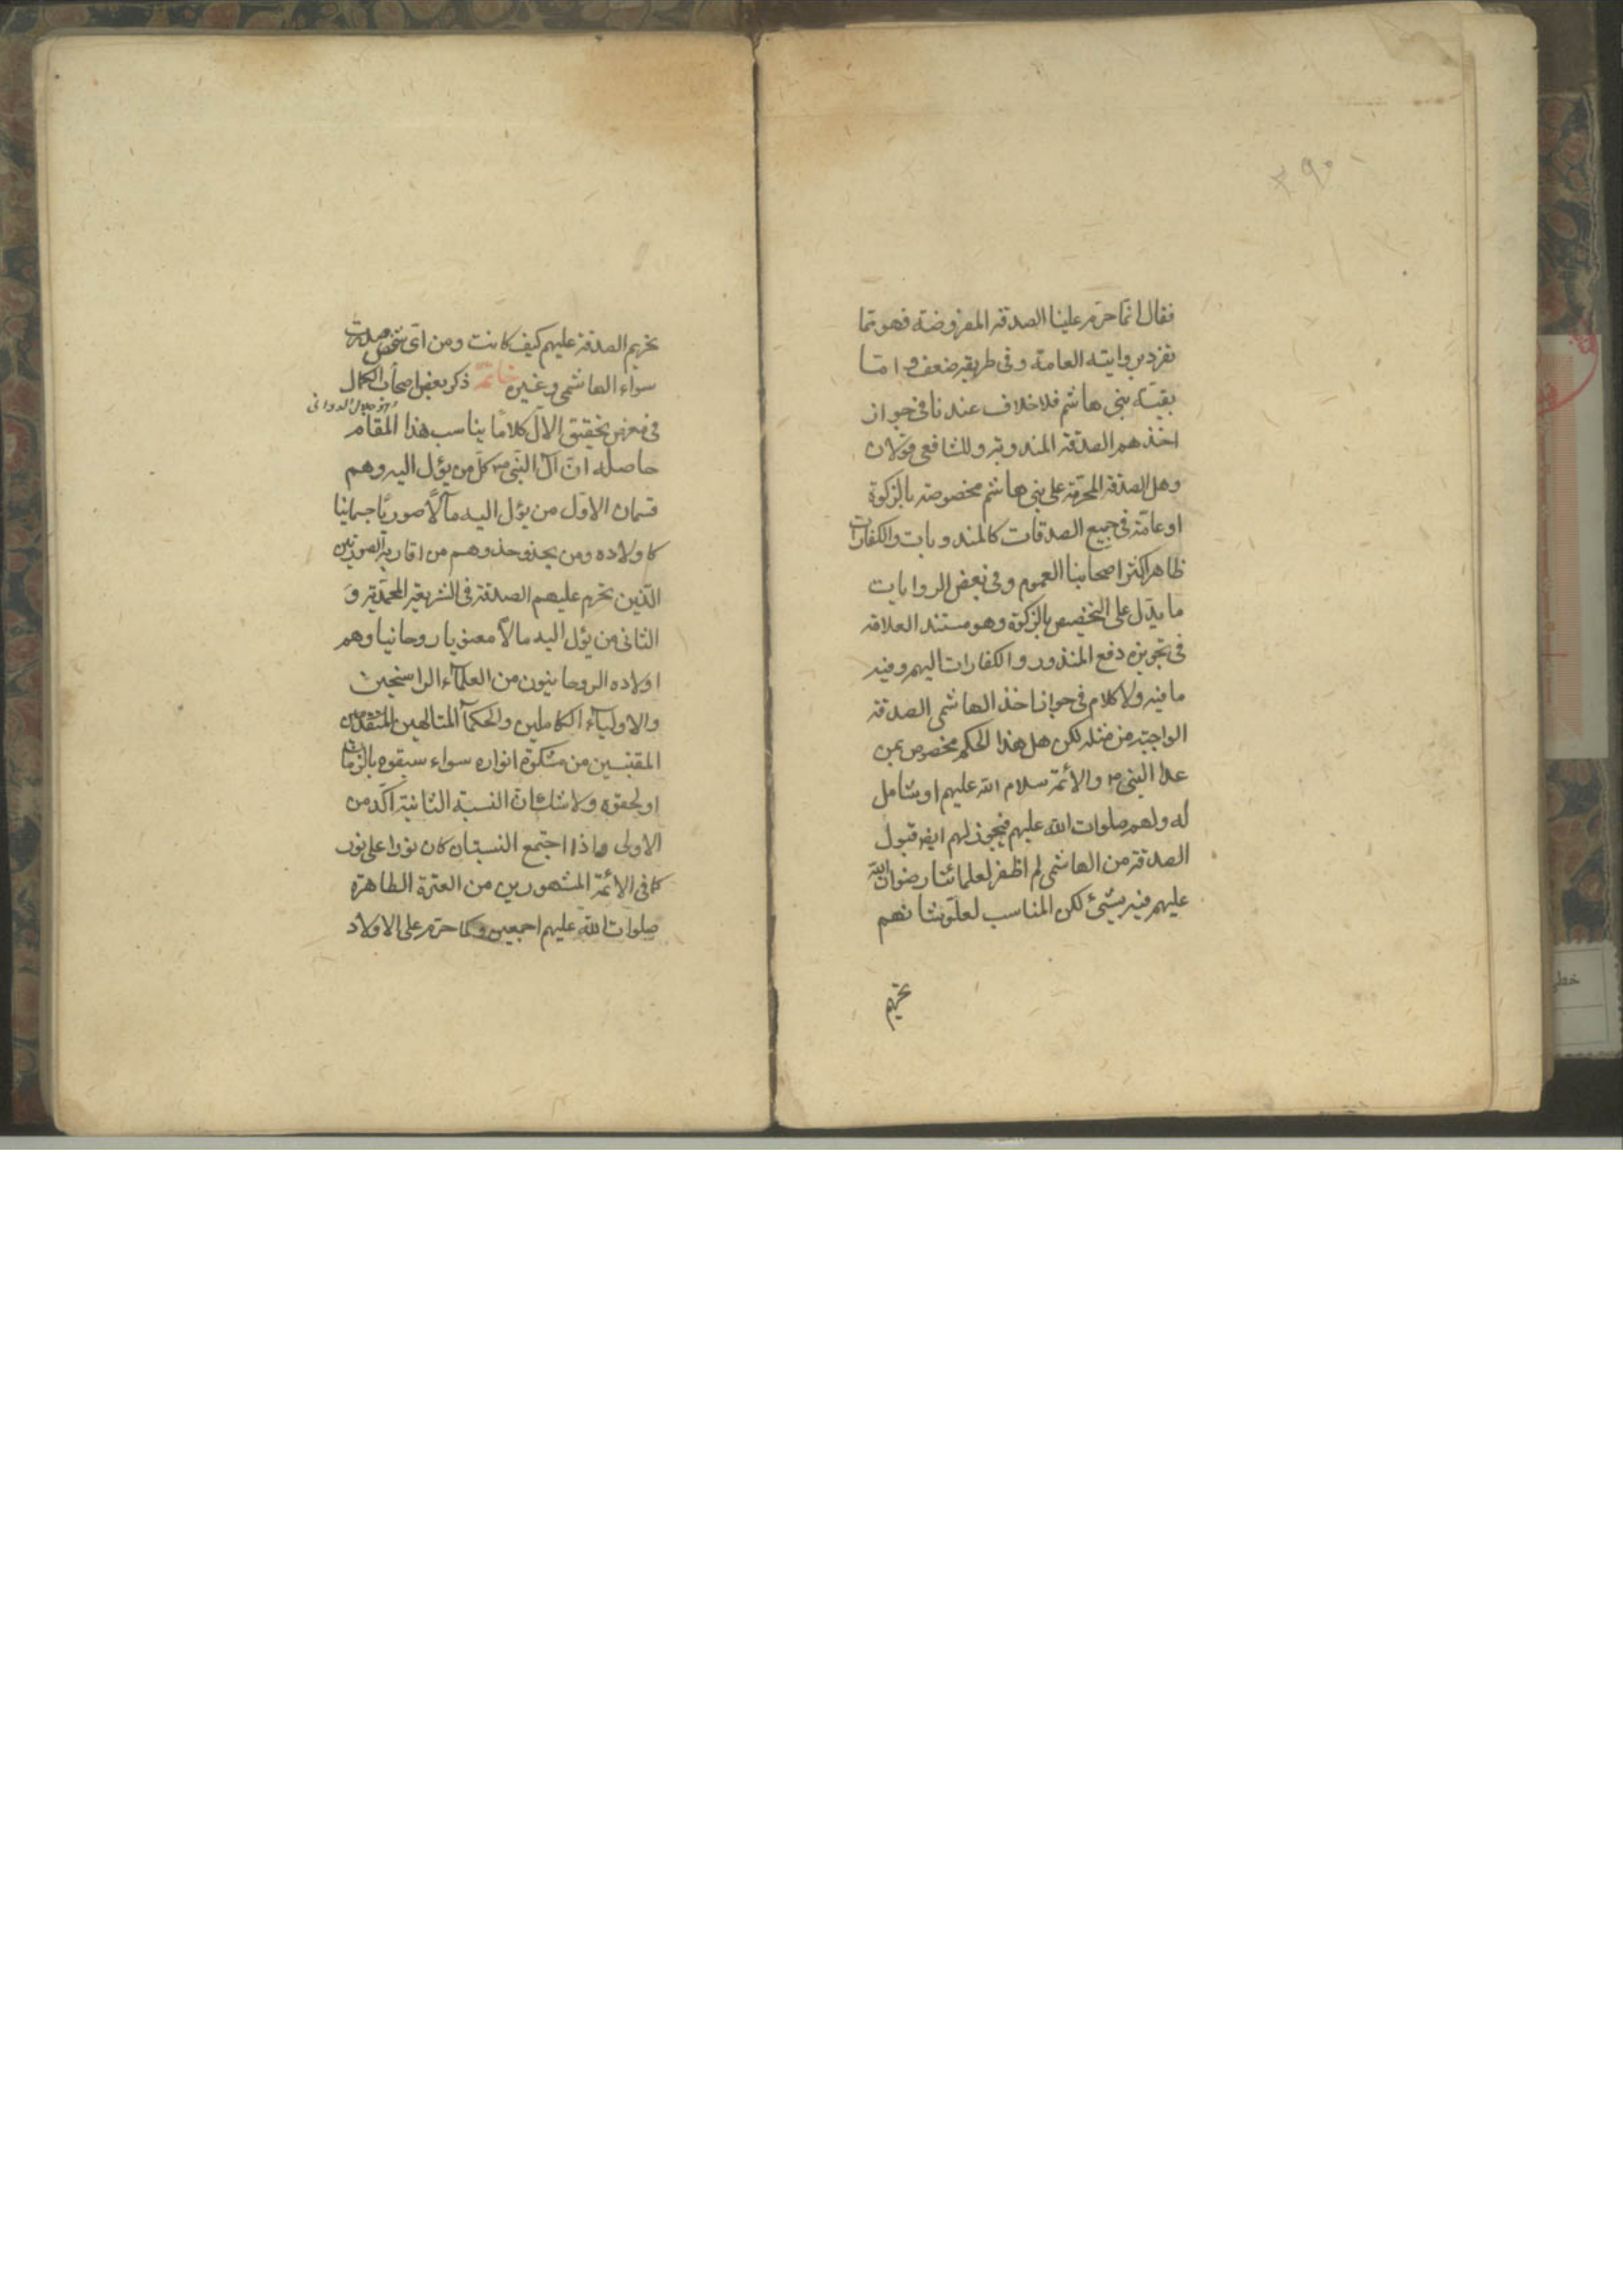 ۳۹۰
فقال انما حرّم علينا الصدقة المفروضة فهو مما
تفرد بروايته العامة وفى طريقه ضعف و امّا
بقية بنى هاشم فلا خلاف عندنا فى جواز
اخذهم الصدقة المندوبة وللشافعى قولان
وهل الصدقة المحرّمة على بنى هاشم مخصوصة بالزكوة
او عامّة فى جميع الصدقات كالمندوبات والكفارات
ظاهر اكثر اصحابنا العموم وفى بعض الروايات
ما يدّل على التخصيص بالزكوة وهو مستند العلامة
فى تجويزه دفع المنذور والكفارات اليهم وفيه
ما فيه ولا كلام فى جواز اخذ الهاشمى الصدقة
الواجبة من مثله لكن هل هذا الحكم مخصوص بمن
عدا النبى ص والأئمة سلام الله عليهم او شامل
له ولهم صلوات الله عليهم فيجوز لهم ايضا قبول
الصدقة من الهاشمى لم اظفر لعلمائنا رضوان الله
عليهم فيه بشئ لكن المناسب لعلوّ شانهم
تحريم
تحريم الصدقة عليهم كيف كانت ومن اىّ شخص صدرت
سواء الهاشمى وغيره خاتمة ذكر بعض اصحاب الكمال
جلال الدوانى
فى معرض تحقيق الآل كلامًا يناسب هذا المقام
حاصله انّ آل النبى ص كلّ من يؤل اليه وهم
قسمان الاوّل من يؤل اليه مآلًا صوريًّا جسمانيا
كاولاده ومن يحذو حذوهم من اقاربه الصوريين
الّذين تحرم عليهم الصدقة فى الشريعة المحمّدية و
الثانى من يؤل اليه مالًا معنويا روحانيا وهم
اولاده الروحانيون من العلمآء الراسخين
والاوليآء الكاملين والحكمآ المتالهين المتقدمين
المقتبسين من مشكوة انواره سواء سبقوه بالزمان
او لحقوه ولا شك انّ النسبة الثانية آكد من
الاولى واذا اجتمع النسبتان كان نورا على نور
كما فى الأئمة المشهورين من العترة الطاهرة
صلوات الله عليهم اجمعين وكما حرّم على الاولاد